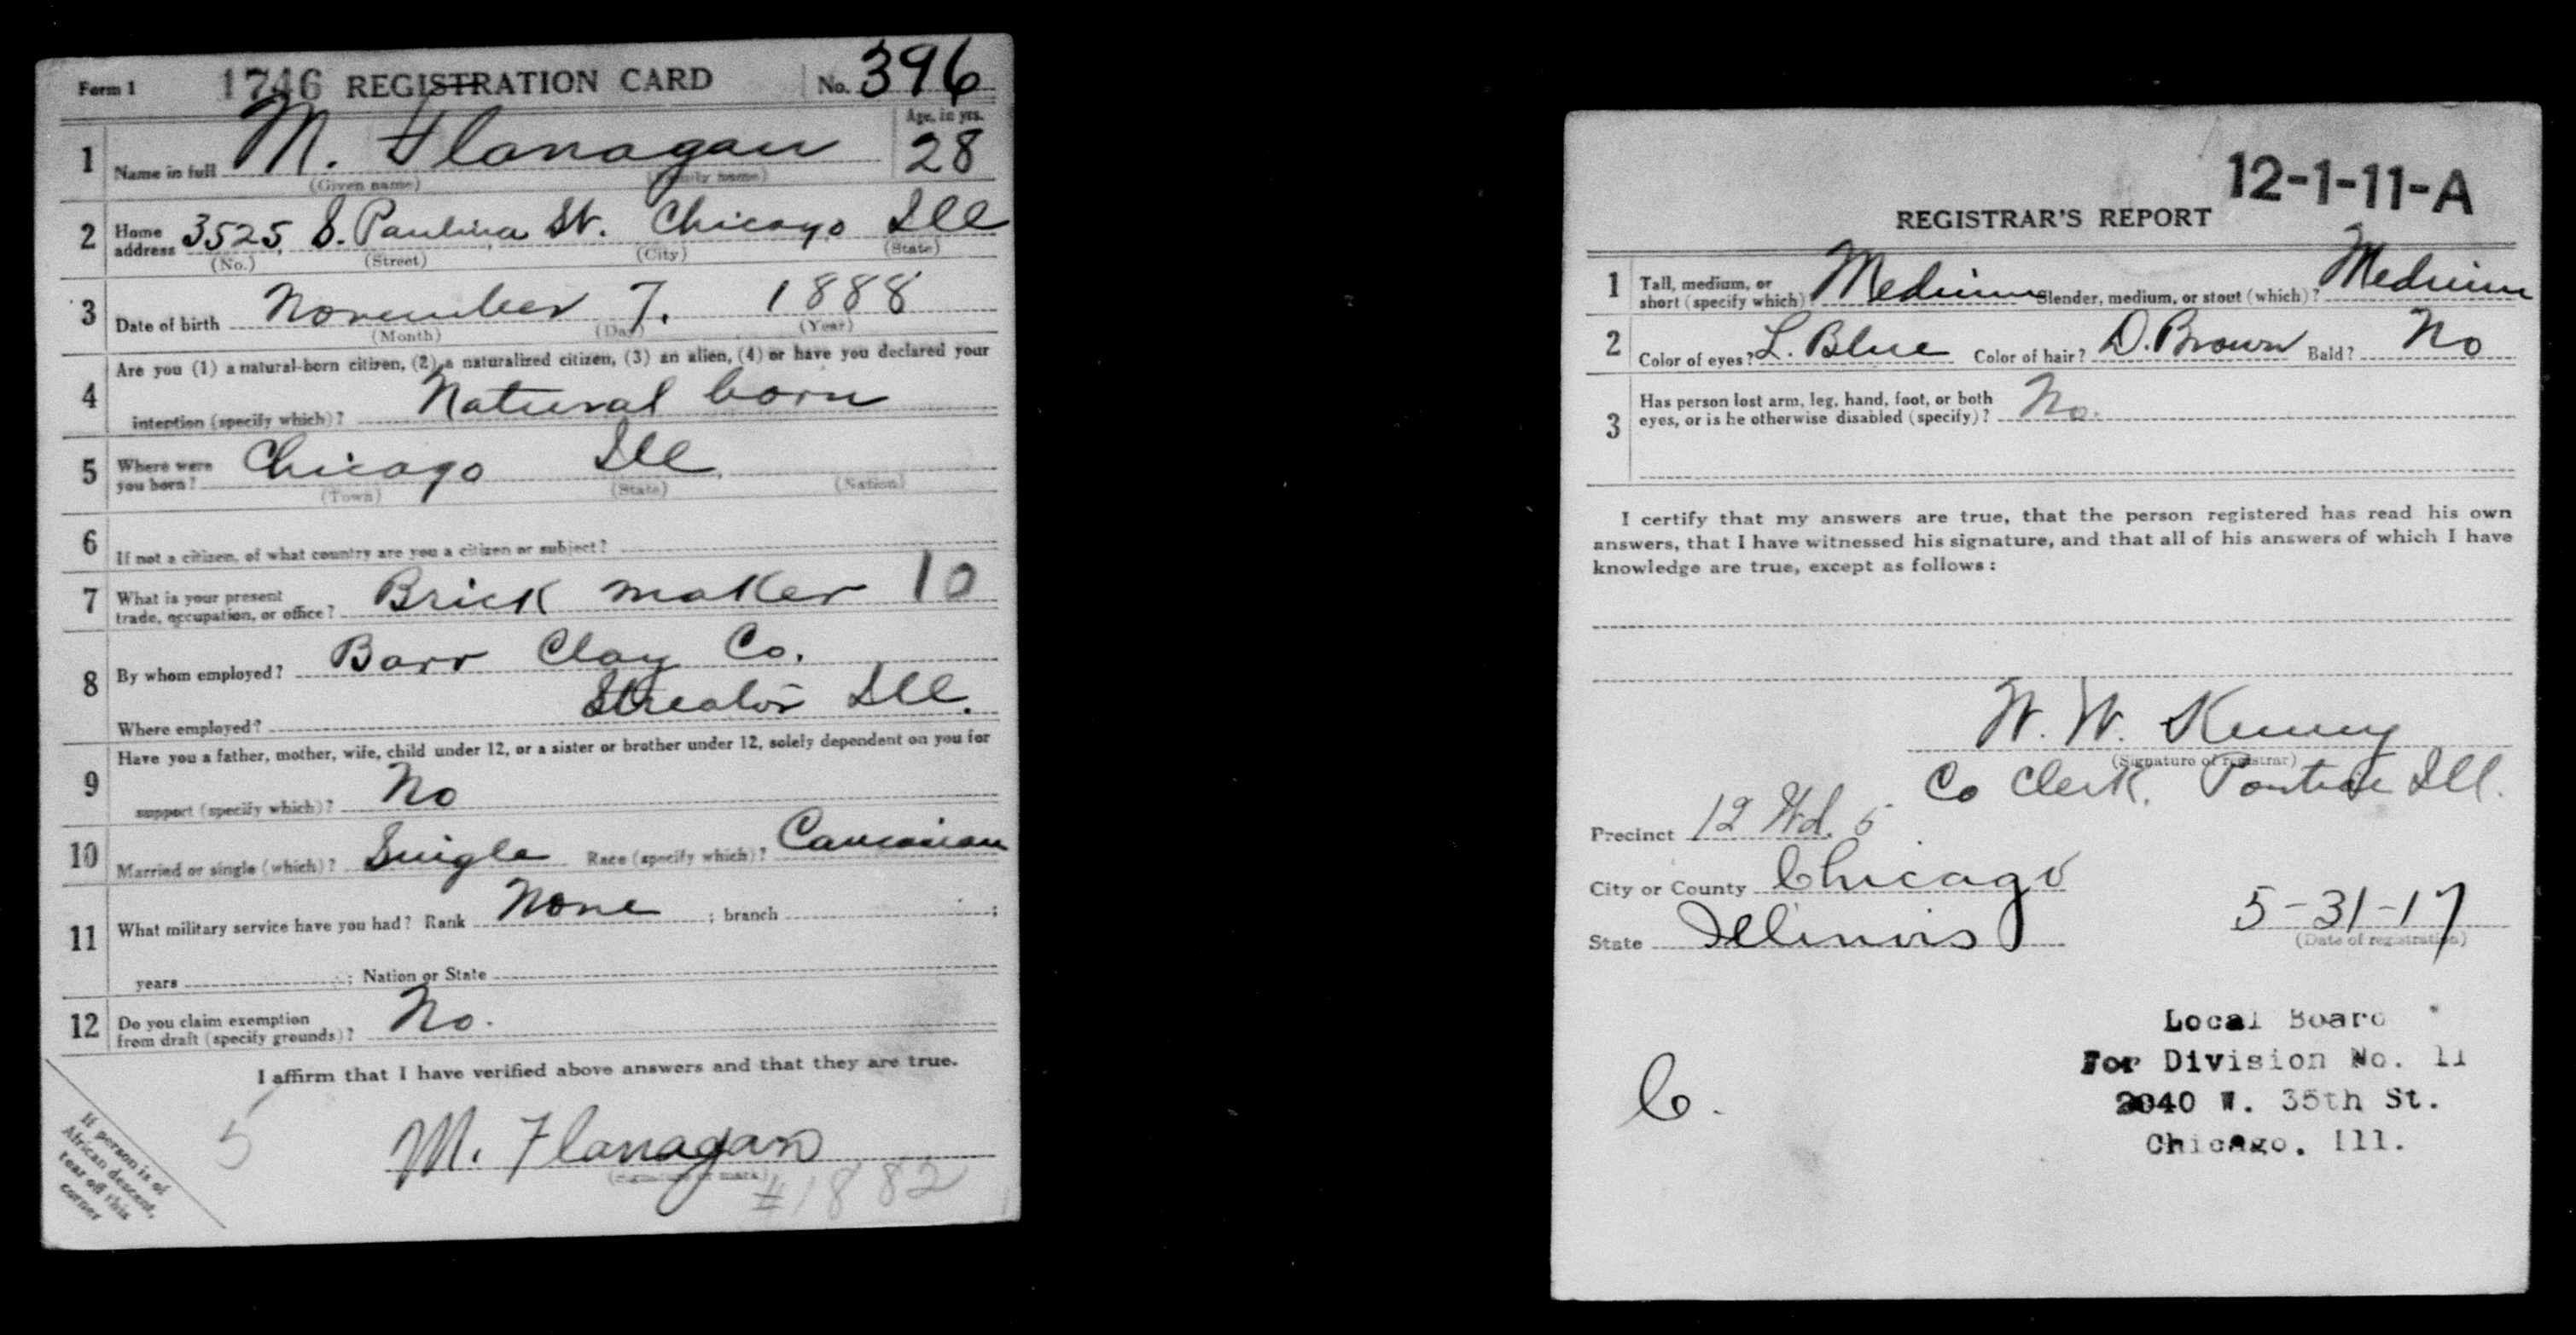 Form 1 1746 REGISTRATION CARD No. 396
1 Name in full M. Flanagan Age, in yrs. 28
(Given name) (Family name)
2 Home address 3525 S. Paulina St. Chicago Ill
(No.) (Street) (City) (State)
3 Date of birth November 7. 1888
(Month) (Day) (Year)
4 Are you (1) a natural-born citizen, (2) a naturalized citizen, (3) an alien, (4) or have you declared your
intention (specify which)? Natural born
5 Where were you born? Chicago Ill.
(Town) (State) (Nation)
6 If not a citizen, of what country are you a citizen or subject?
7 What is your present trade, occupation, or office? Brick maker 10
8 By whom employed? Barr Clay Co.
Where employed? Streator Ill.
9 Have you a father, mother, wife, child under 12, or a sister or brother under 12, solely dependent on you for
support (specify which)? No
10 Married or single (which)? Single Race (specify which)? Caucasian
11 What military service have you had? Rank None ; branch ;
years ; Nation or State
12 Do you claim exemption from draft (specify grounds)? No.
I affirm that I have verified above answers and that they are true.
5
M. Flanagan
(Signature or mark)
#1882
If person is of
African descent,
tear off this
corner
12-1-11-A
REGISTRAR'S REPORT
1 Tall, medium, or short (specify which)? Medium Slender, medium, or stout (which)? Medium
2 Color of eyes? L. Blue Color of hair? D. Brown Bald? No
3 Has person lost arm, leg, hand, foot, or both
eyes, or is he otherwise disabled (specify)? No.
I certify that my answers are true, that the person registered has read his own
answers, that I have witnessed his signature, and that all of his answers of which I have
knowledge are true, except as follows:
W. W. Kenny
(Signature of registrar)
Co Clerk, Pontiac Ill.
Precinct 12 Wd. 5
City or County Chicago
State Illinois 5-31-17
(Date of registration)
Local Board
For Division No. 11
2040 W. 35th St.
Chicago, Ill.
C.